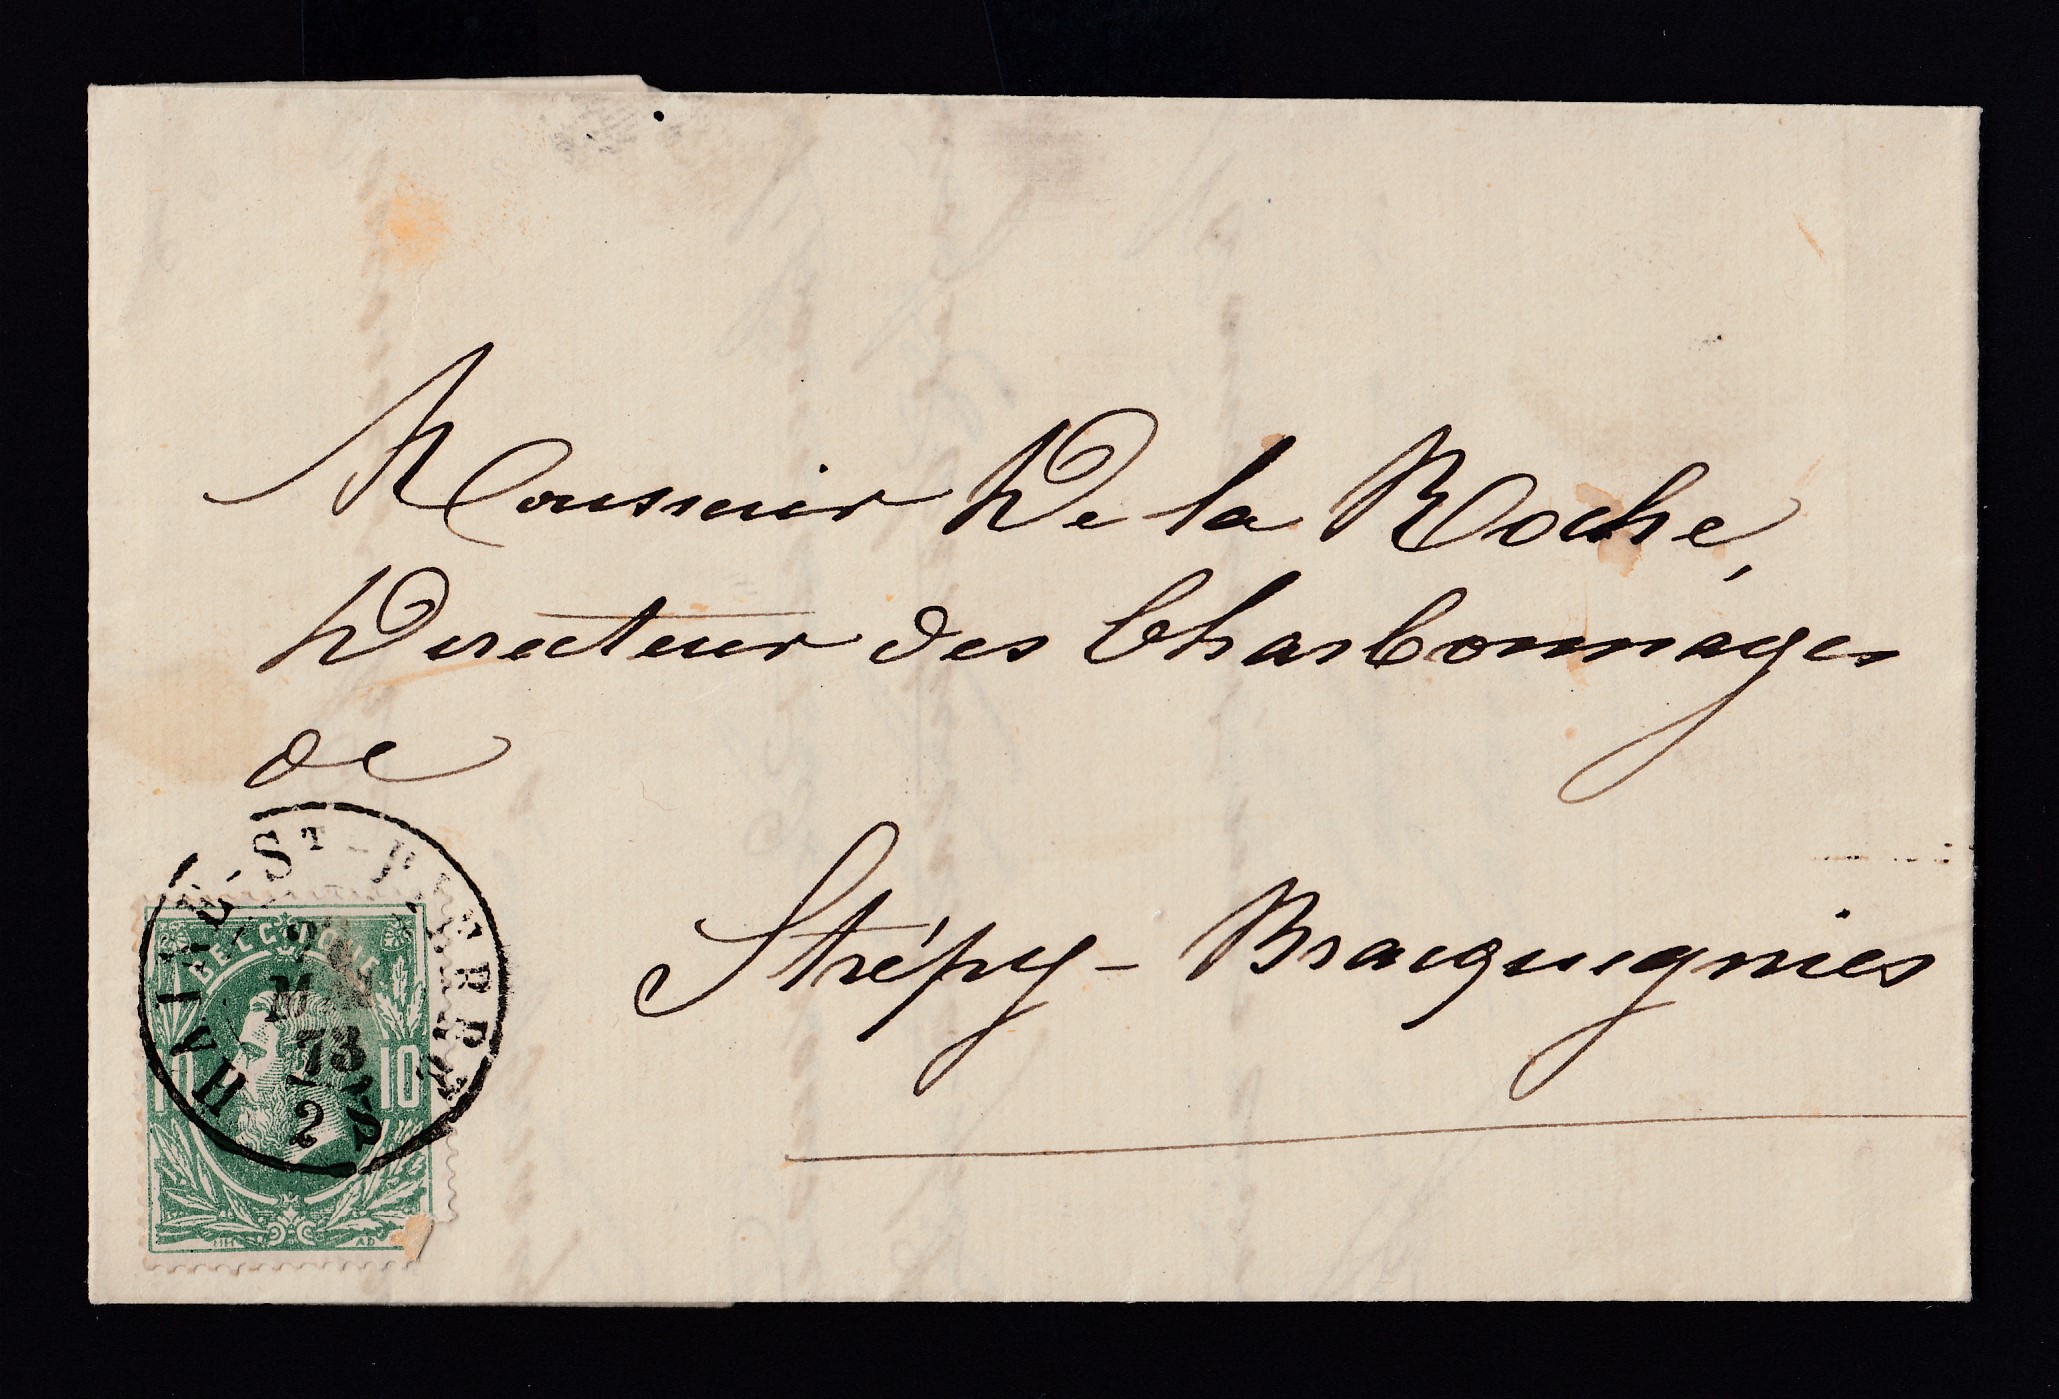 Monsieur De la Roche,
Directeur des Charbonnages
de
Strépy-Bracquegnies
HAINE-ST-PIERRE
MAI
73
2
BELGIQUE
10 10
HH AD